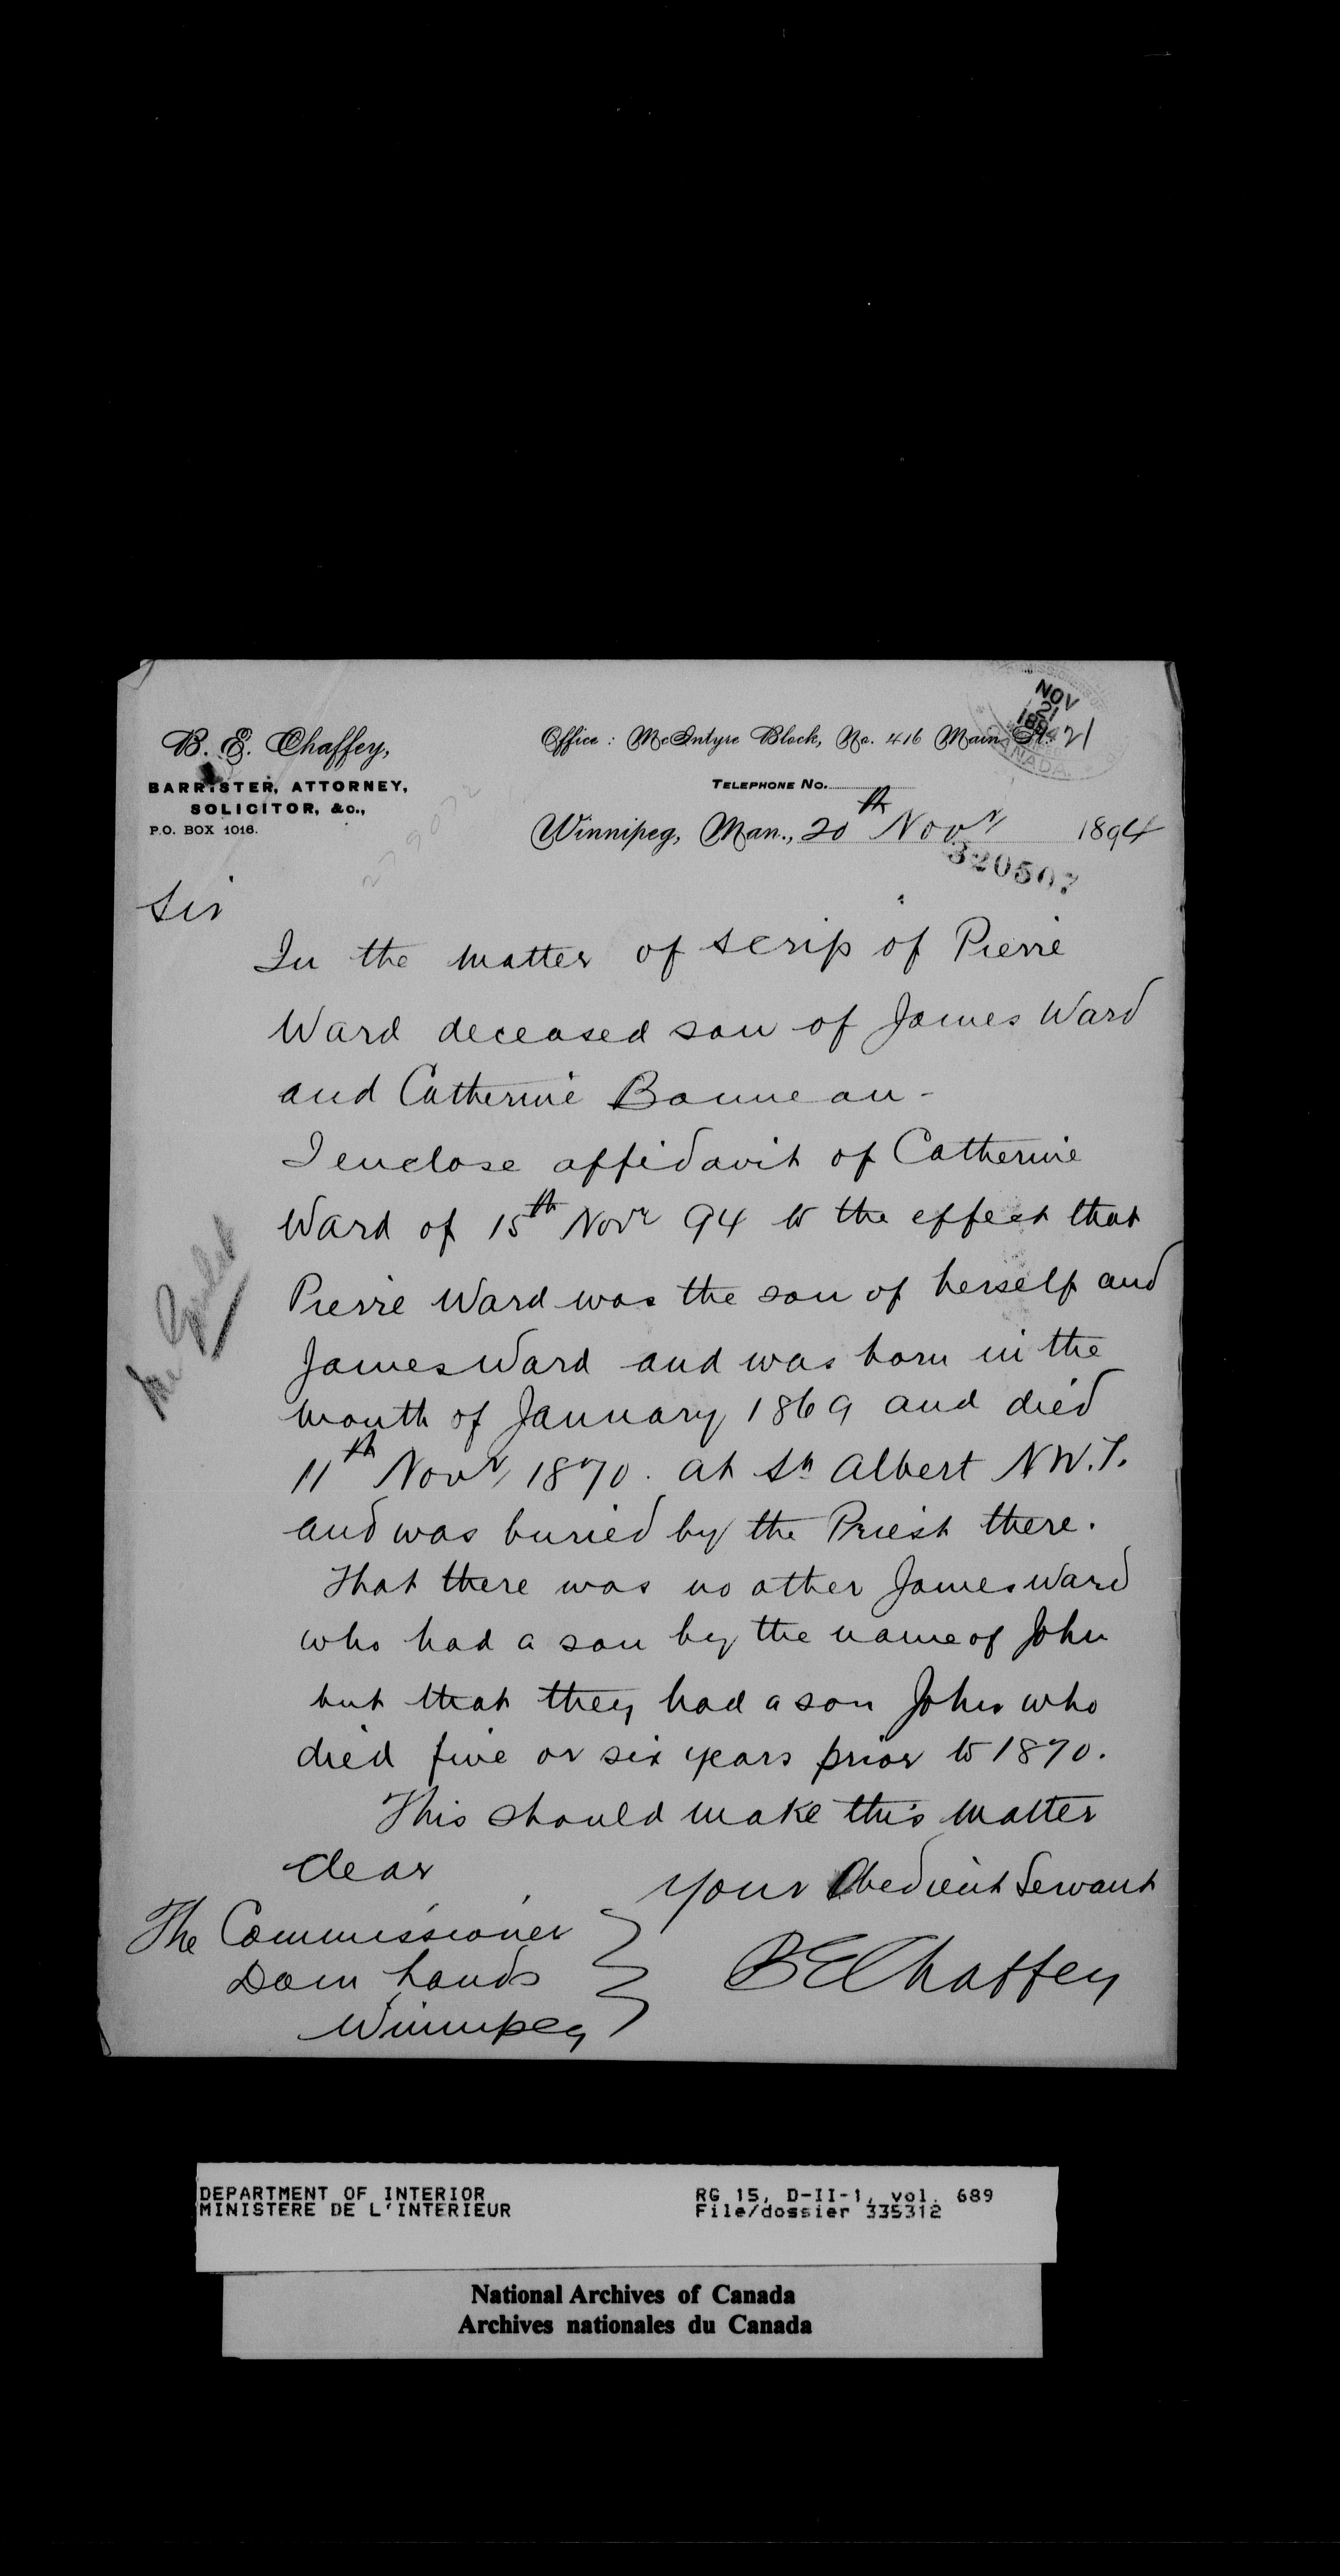 B. E. Chaffey,
BARRISTER, ATTORNEY,
SOLICITOR, &c.,
P.O. BOX 1016.
Office : McIntyre Block, No. 416 Main St.
NOV
21
1894
CANADA
21
TELEPHONE No.
Winnipeg, Man., 20th Novr 1894
320507
Sir
In the matter of scrip of Pierre
Ward deceased son of James Ward
and Catherine Bonneau -
I enclose affidavit of Catherine
Ward of 15th Novr 94 to the effect that
Pierre Ward was the son of herself and
James Ward and was born in the
month of January 1869 and died
11th Novr 1870. at St Albert N.W.T.
and was buried by the Priest there.
That there was no other James Ward
who had a son by the name of John
but that they had a son John who
died five or six years prior to 1870.
This should make this matter
clear
Your Obedient Servant
BEChaffey
The Commissioner
Dom Lands
Winnipeg
DEPARTMENT OF INTERIOR
MINISTERE DE L'INTERIEUR
RG 15, D-II-1, vol. 689
File/dossier 335312
National Archives of Canada
Archives nationales du Canada